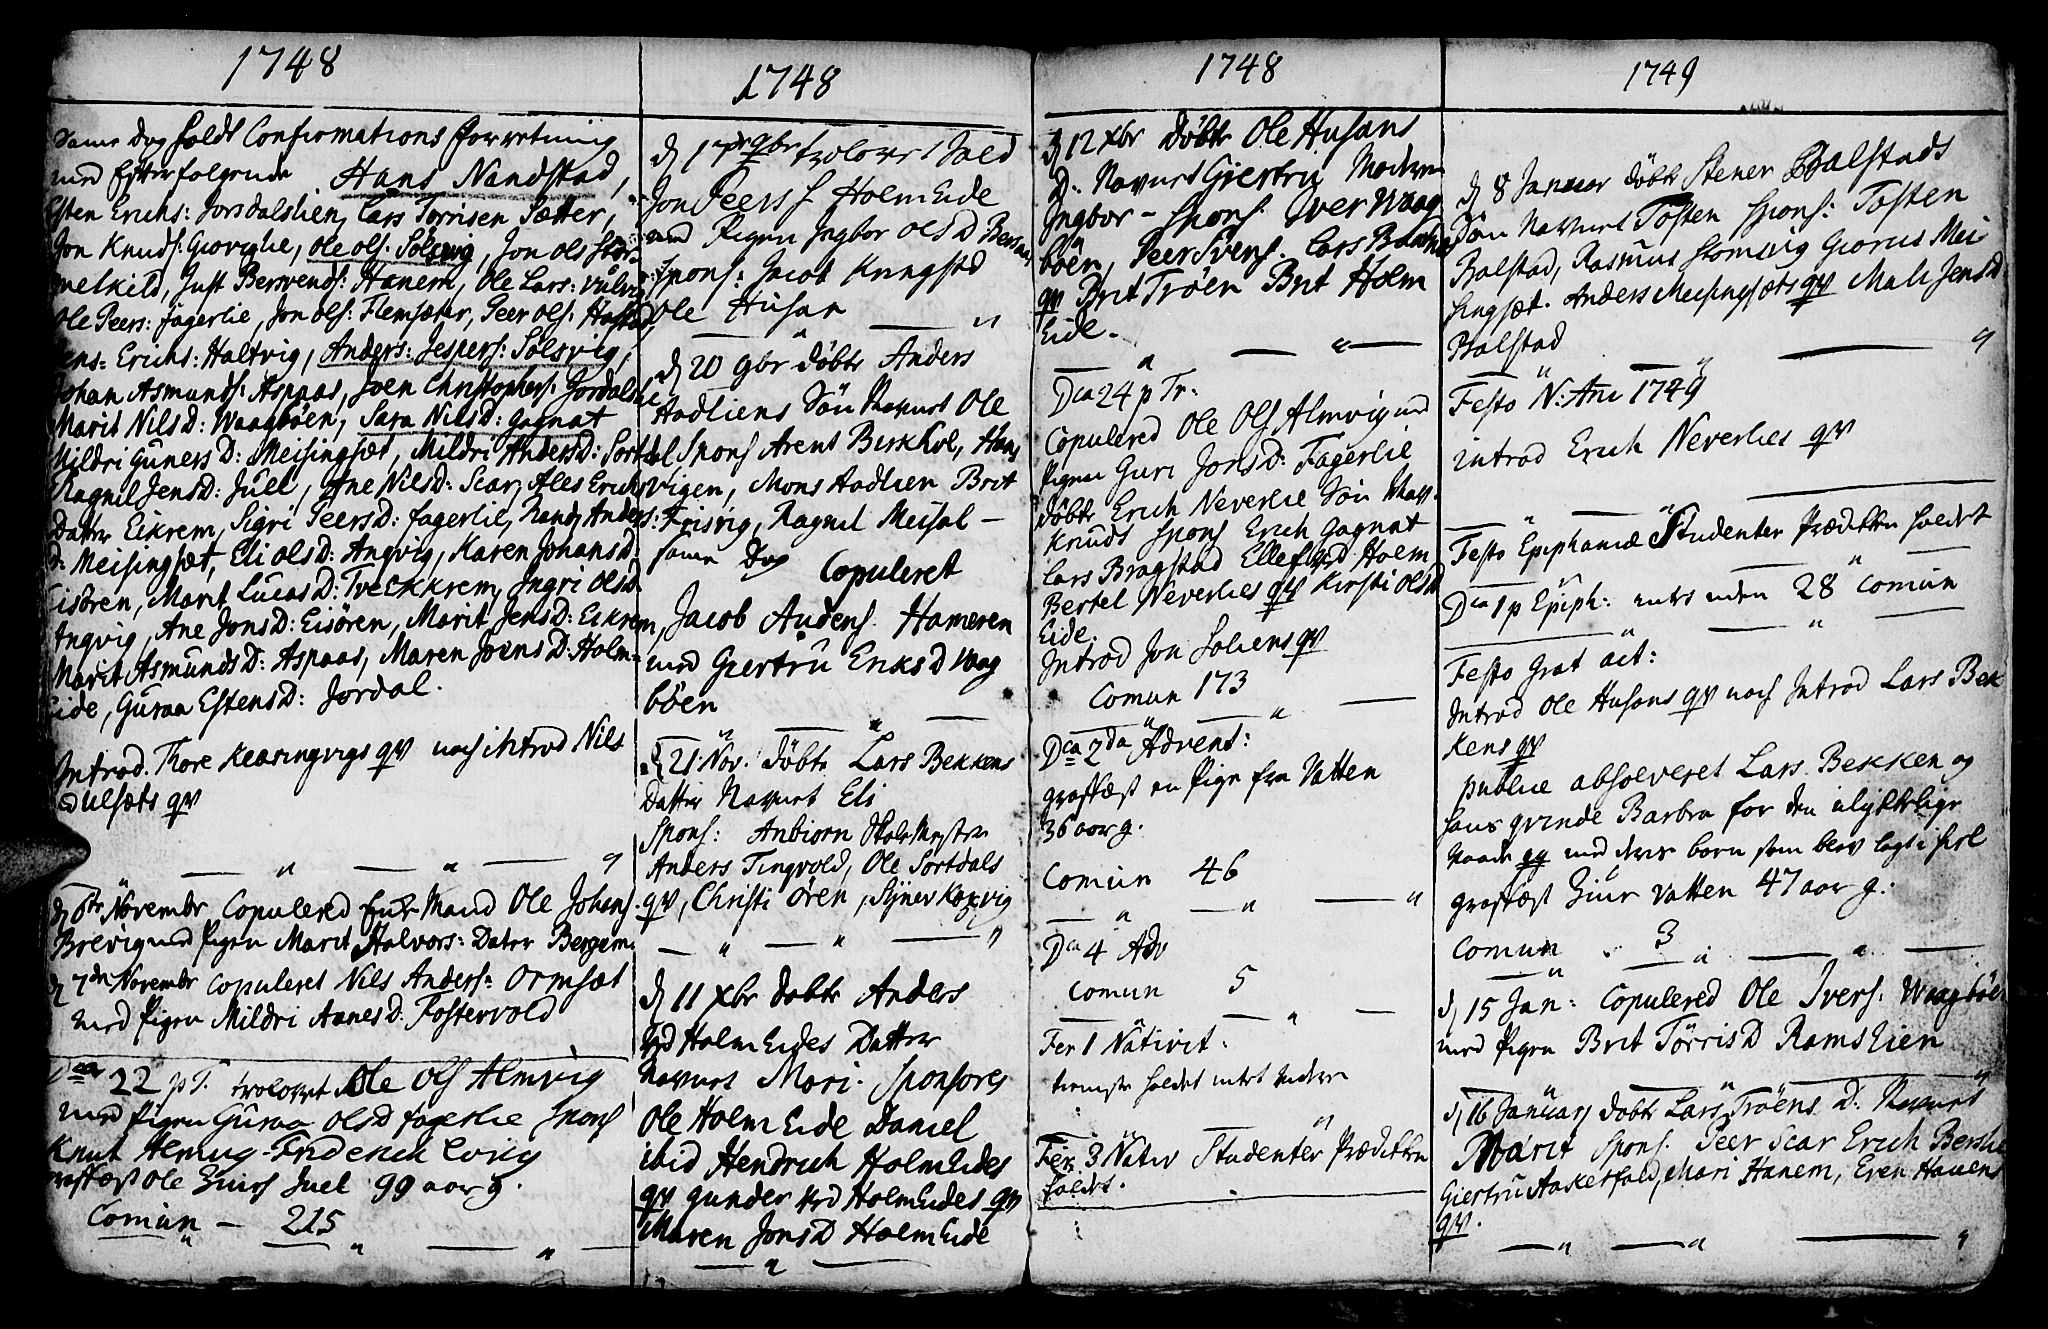 1748
Same Dag holdt Confirmations forretning
med Efterfølgende Hans Nandstad,
Esten Erichs: Jorsdalslien, Lars Torrisen Sætter,
Jon Knuds: Gioviglie, Ole Ols: Sølsvig, Jon Ols Stor
melkild, Just Bersvends: Hanem, Ole Lars: Vulvig
Ole Peers: Fagerlie, Jon Ols: Flemsæter, Peer Ols: Hafstad
Jens: Erichs: Haltvig, Anders: Jespers: Sølsvig,
Johan Asmunds: Aspaas, Joen Christophers: Jordalslie
Marit Nils D: Waagbøen, Sara Nils D: Gagnat
Mildri Guners D: Meisingsæt, Mildri Anders D: Sortdal
Ragnil Jens D: Juell, Ane Nils D: Scar, Ales Erichs
Datter Eikrem, Sigri Peers D: Fagerlie, Rand Anders:
D: Meisingsæt, Eli Ols D: Angvig, Karen Johans D:
Eisøren, Marit Lucas D: Tveekrem, Ingri Ols D
Angvig, Ane Jons D: Eisøren, Marit Jens D: Eikrem,
Marit Asmunds D: Aspaas, Maren Joens D: Holm-
Eide, Guraa Estens D: Jordal.
Introd. Thore Kearingvigs qv noch introd Nils
Dulsæts qv
d 6te Novembr Copulered Enke Mand Ole Johans.
Brevig med Pigen Marit Halvors: Dater Bergem.
d 7de Novembr Copuleret Nils Anders: Ormsæt
med Pigen Mildri Aanes D. Fostervold
Dca 22 p T. trolovet Ole Ols Almvig
med Pigen Guraa Ols D Fagerlie Spons
Knut Almvig Friderich Corig
grafffæst Ole Juel 99 aar g.
Comun — 215
1748
d 17de 9br trolovet
Jon Peers S HolmEide
med Pigen Ingbor Ols D
Spons: Jacob Kungstd
Ole Husan
d 20 9br døbte Anders
Aadliens Søn Navnt Ole
Spons Arent Berkhol, Hans
Vigen, Mons Aadlien Brit
Frisvig, Ragnil Meisal —
same Dag Copuleret
Jacob Andens. Hameren
med Giertru Eriks D Vaag
bøen
d 21 Nov: døbte Lars Bekkens
Datter Navnt Eli
Spons: Anbiorn Skole Mester
Anders Tingvold, Ole Sortdals
qv, Christi Øren, Synev Koxvig
d 11 xbr døbte Anders
ved HolmEides Datter
Navnt Mari. Sponsores
Ole HolmEide Daniel
ibid Hendrich HolmEides
qv gunder ved HolmEides qv
Maren Jons D HolmEide
1748
d 12 xbr døbte Ole Husans
D. Navnet Giertru Moderen
Ingbor — Spons. Iver Waag
bøen, Peer Svens. Lars
qv Brit Trøen Brit Holm
Eide.
Dca 24 p Tr:
Copulered Ole Ols Almvig med
Pigen Guri Jons D: Fagerlie
døbte Erich Neverlie Søn Nav.
Knuds Spons Erich Gagnat
Lars Bragstad Ellef ved Holm
Bertel Neverlies qv Kirsti Ols D
Eide.
Introd Jon Soliens qv
Comun 173
Dca 2da Advent:
grafffæst en Pige fra Vatten
36 aar g.
Comun 46
Dca 4 Adv
Comun 5
Fer 1 Nativit:
tieneste holdet intet videre
Fer: 3 Nativ Studenter Prædiken
holdet.
1749
d 8 Januar døbte Stener Balstads
Søn Navnet Tosten Spons: Tosten
Balstad, Rasmus Stomsvig Giorus Mei
singsæt. Anders Meisingsæts qv Mali Jens D
Balstad
Festo N: Ani 1749
introd Erich Neverlies qv
Festo Epiphaniæ Studenter Prædiken holdet
Dca 1 p Epiph: intet uden 28 Comun
Festo Grat act:
Introd Ole Husans qv noch Introd Lars Bek
Kens qv
publice absolveret Lars Bekken og
hans qvinde Barbra for den ulykkelige
vaade med deres barn som blev lagt i hiel
grafffæst Siur Vatten 47 aar g:
Comun 3
d 15 Jan: Copulered Ole Ivers. Waagbøe
med Pigen Brit Tørris D Ramslien
d 16 Januarj døbte Lars Trøens D: Navnet
Marit Spons. Peer Scar Erich Berslie
Giertru Aasketfald, Mari Hanem, Even Hanens
qv.